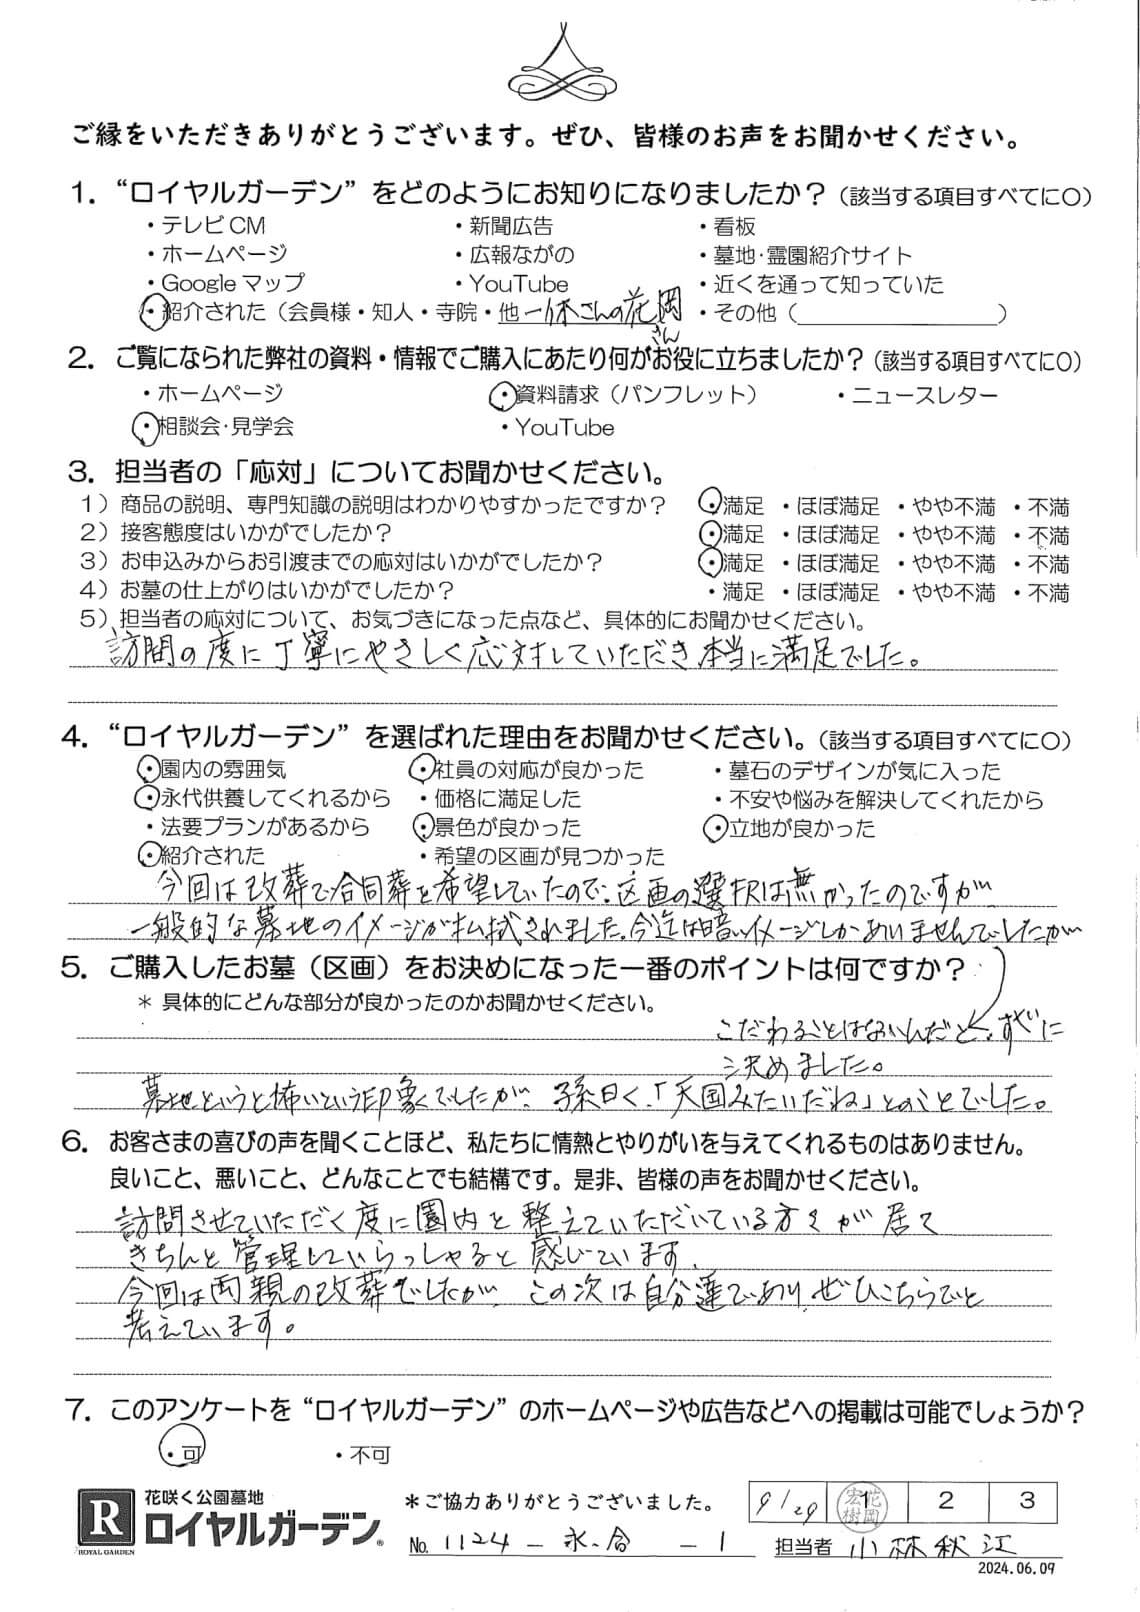 ご縁をいただきありがとうございます。ぜひ、皆様のお声をお聞かせください。
1. “ロイヤルガーデン”をどのようにお知りになりましたか？（該当する項目すべてに○）
・テレビCM ・新聞広告 ・看板
・ホームページ ・広報ながの ・墓地・霊園紹介サイト
・Googleマップ ・YouTube ・近くを通って知っていた
・紹介された（会員様・知人・寺院・他 一休さんの花岡さん ・その他（　　　　）
2. ご覧になられた弊社の資料・情報でご購入にあたり何がお役に立ちましたか？（該当する項目すべてに○）
・ホームページ ・資料請求（パンフレット） ・ニュースレター
・相談会・見学会 ・YouTube
3. 担当者の「応対」についてお聞かせください。
1）商品の説明、専門知識の説明はわかりやすかったですか？ ・満足 ・ほぼ満足 ・やや不満 ・不満
2）接客態度はいかがでしたか？ ・満足 ・ほぼ満足 ・やや不満 ・不満
3）お申込みからお引渡までの応対はいかがでしたか？ ・満足 ・ほぼ満足 ・やや不満 ・不満
4）お墓の仕上がりはいかがでしたか？ ・満足 ・ほぼ満足 ・やや不満 ・不満
5）担当者の応対について、お気づきになった点など、具体的にお聞かせください。
訪問の度に丁寧にやさしく応対していただき本当に満足でした。
4. “ロイヤルガーデン”を選ばれた理由をお聞かせください。（該当する項目すべてに○）
・園内の雰囲気 ・社員の対応が良かった ・墓石のデザインが気に入った
・永代供養してくれるから ・価格に満足した ・不安や悩みを解決してくれたから
・法要プランがあるから ・景色が良かった ・立地が良かった
・紹介された ・希望の区画が見つかった
今回は改葬で合同葬を希望していたので、区画の選択は無かったのですが、
一般的な墓地のイメージが払拭されました。今迄は暗いイメージしかありませんでしたが
5. ご購入したお墓（区画）をお決めになった一番のポイントは何ですか？
＊ 具体的にどんな部分が良かったのかお聞かせください。
こだわることはないんだと、すぐに
決めました。
墓地というと怖いという印象でしたが、孫曰く、「天国みたいだね」とのことでした。
6. お客さまの喜びの声を聞くことほど、私たちに情熱とやりがいを与えてくれるものはありません。
良いこと、悪いこと、どんなことでも結構です。是非、皆様の声をお聞かせください。
訪問させていただく度に園内を整えていただいている方々が居て
きちんと管理していらっしゃると感じています。
今回は両親の改葬でしたが、この次は自分達であり、ぜひこちらでと
考えています。
7. このアンケートを“ロイヤルガーデン”のホームページや広告などへの掲載は可能でしょうか？
・可 ・不可
R
ROYAL GARDEN
花咲く公園墓地
ロイヤルガーデン®
＊ご協力ありがとうございました。
No. 1124 - 永.合 - 1
9/29 1 2 3
花岡宏樹
担当者 小林秋江
2024.06.09